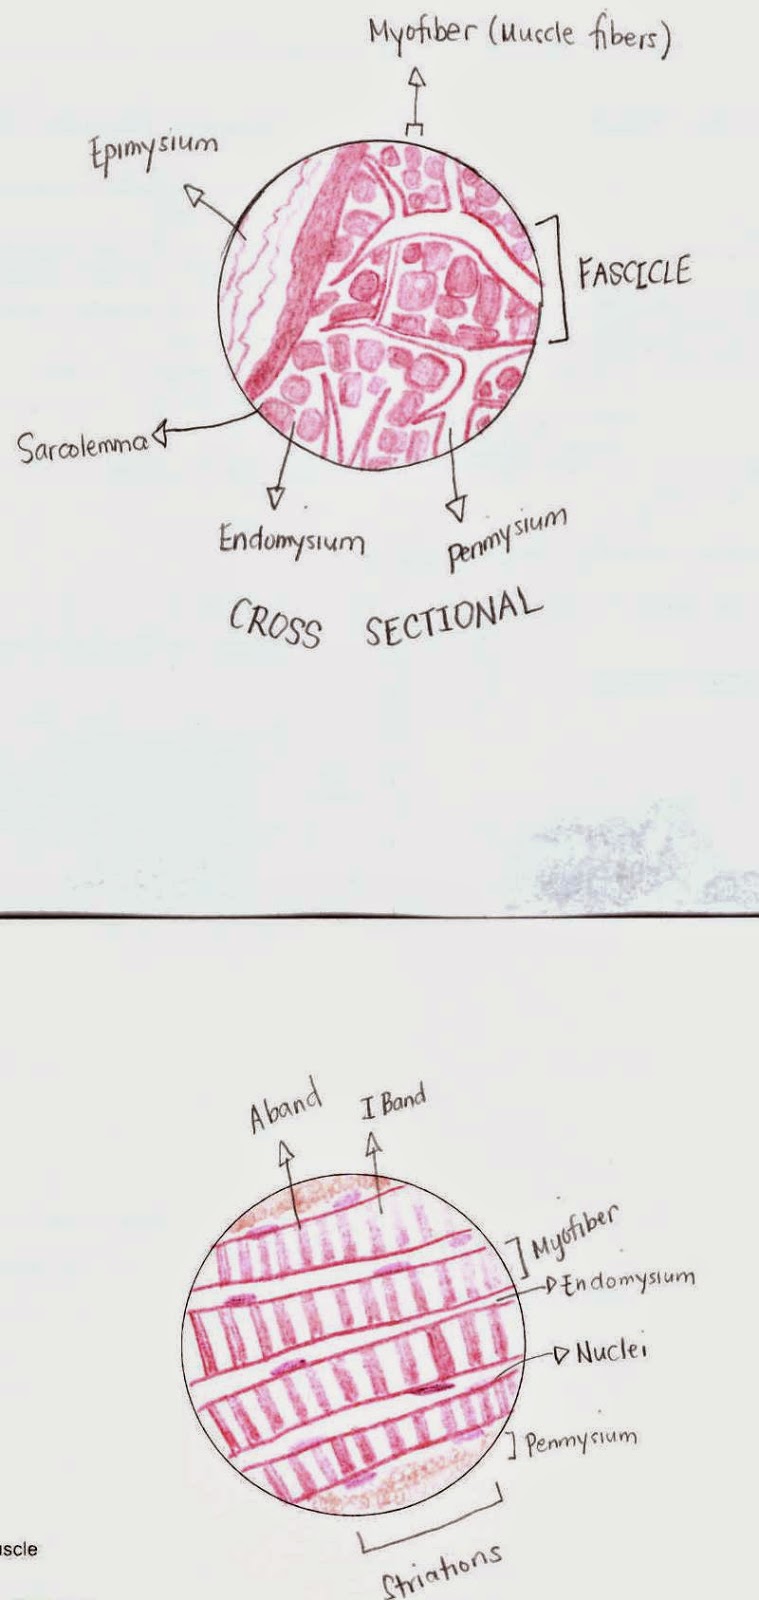 Myofiber (Muscle fibers)
Epimysium
FASCICLE
Sarcolemma
Endomysium
Perimysium
CROSS SECTIONAL
A band
I Band
Myofiber
Endomysium
Nuclei
Perimysium
Striations
uscle